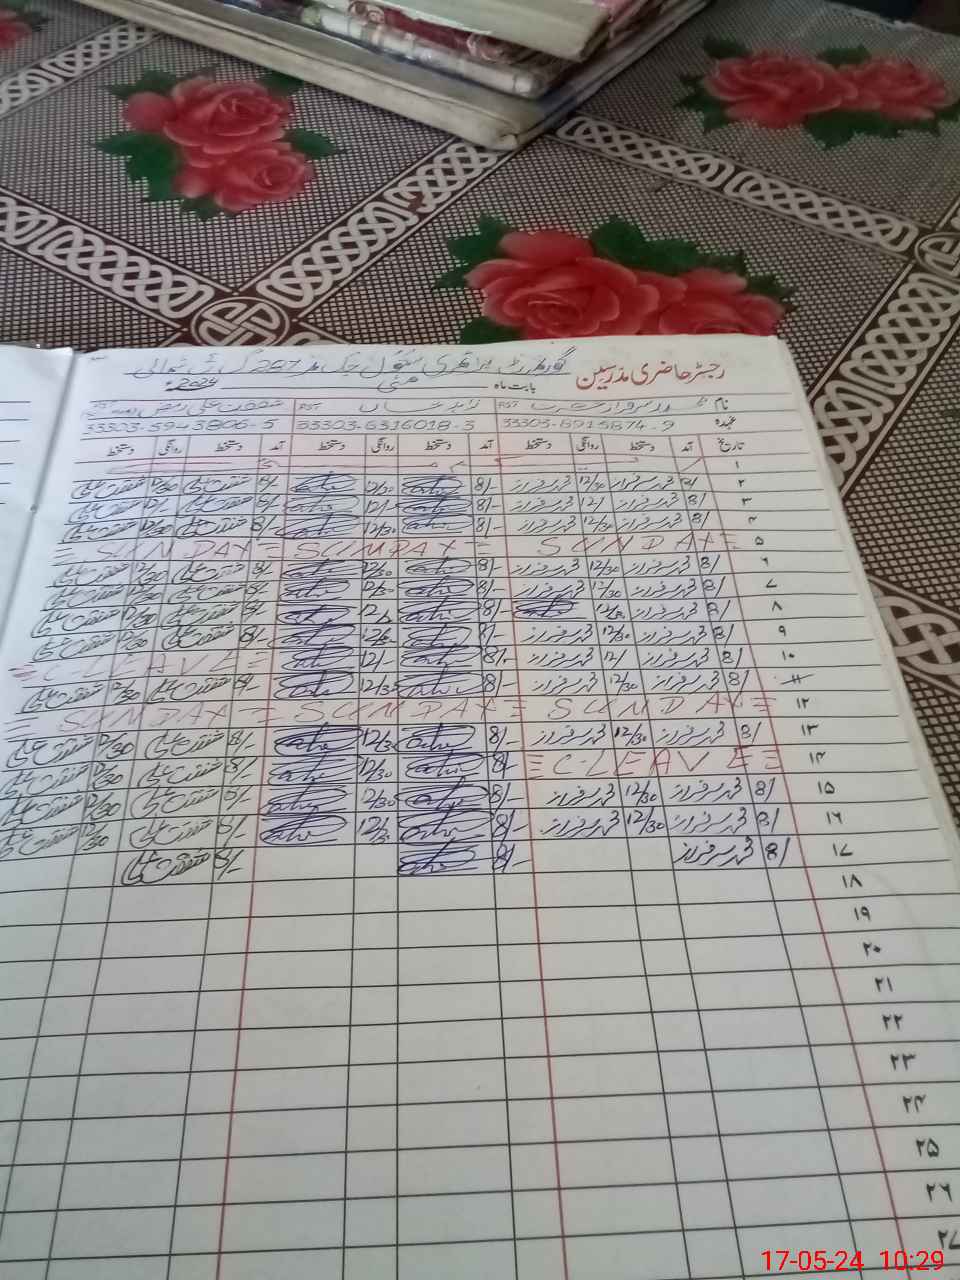 رجسٹر حاضری مدرسین گورنمنٹ پرائمری سکول چک نمبر 267 گ ب شمالی
بابت ماہ مئی 2024ء
نام محمد سرفراز PST زاہد PST شفقت علی
عہدہ 33303-8915874-9 33303-6316018-3 33303-5943806-5
تاریخ آمد دستخط روانگی دستخط آمد دستخط روانگی دستخط آمد دستخط روانگی دستخط
۱
۲ 8/ محمد سرفراز 12/30 محمد سرفراز 8/- 12/30 8/- شفقت علی 12/30 شفقت علی
۳ 8/ محمد سرفراز 12/ محمد سرفراز 8/- 12/- 8/- شفقت علی 12/- شفقت علی
۴ 8/ محمد سرفراز 12/30 محمد سرفراز 8/- 12/30 8/- شفقت علی 12/30 شفقت علی
۵ SUNDAY SUNDAY SUNDAY
۶ 8/ محمد سرفراز 12/30 محمد سرفراز 8/- 12/30 8/- شفقت علی 12/30 شفقت علی
۷ 8/ محمد سرفراز 12/30 محمد سرفراز 8/- 12/30 8/- شفقت علی 12/30 شفقت علی
۸ 8/ محمد سرفراز 8/- 8/- شفقت علی 12/30 شفقت علی
۹ 8/ محمد سرفراز 12/30 محمد سرفراز 8/- 8/- شفقت علی 12/30 شفقت علی
۱۰ 8/ محمد سرفراز 12/ محمد سرفراز 8/- 12/- C-LEAVE
۱۱ 8/ محمد سرفراز 12/30 محمد سرفراز 8/- 12/30 8/- شفقت علی 12/30 شفقت علی
۱۲ SUNDAY SUNDAY SUNDAY
۱۳ 8/ محمد سرفراز 12/30 محمد سرفراز 8/- 12/30 8/- شفقت علی 12/30 شفقت علی
۱۴ C-LEAVE 8/- 12/30 8/- شفقت علی 12/30 شفقت علی
۱۵ 8/ محمد سرفراز 12/30 محمد سرفراز 8/- 12/30 8/- شفقت علی 12/30 شفقت علی
۱۶ 8/ محمد سرفراز 12/30 محمد سرفراز 8/- 12/30 8/- شفقت علی 12/30 شفقت علی
۱۷ 8/ محمد سرفراز 8/- 8/- شفقت علی
۱۸
۱۹
۲۰
۲۱
۲۲
۲۳
۲۴
۲۵
۲۶
۲۷
17-05-24 10:29